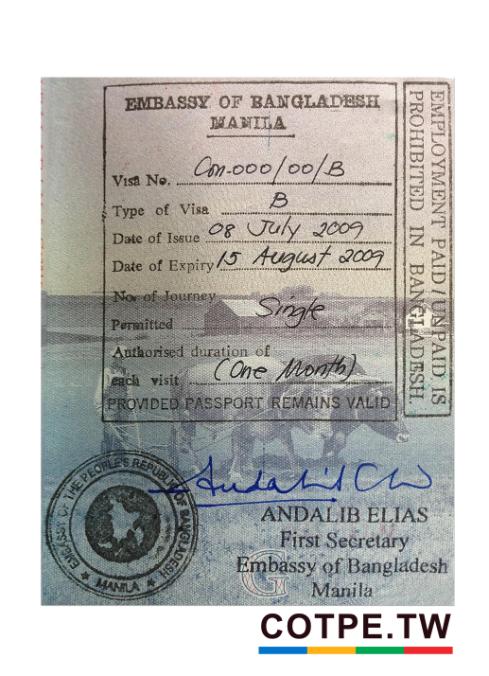 EMBASSY OF BANGLADESH
MANILA
Visa No. Con.000/00/B
Type of Visa B
Date of Issue 08 July 2009
Date of Expiry 15 August 2009
No. of Journey
Permitted Single
Authorised duration of
each visit (One Month)
PROVIDED PASSPORT REMAINS VALID
EMPLOYMENT PAID/UNPAID IS
PROHIBITED IN BANGLADESH.
EMBASSY OF THE PEOPLE'S REPUBLIC OF BANGLADESH
★ MANILA ★
ANDALIB ELIAS
First Secretary
Embassy of Bangladesh
Manila
G
COTPE.TW